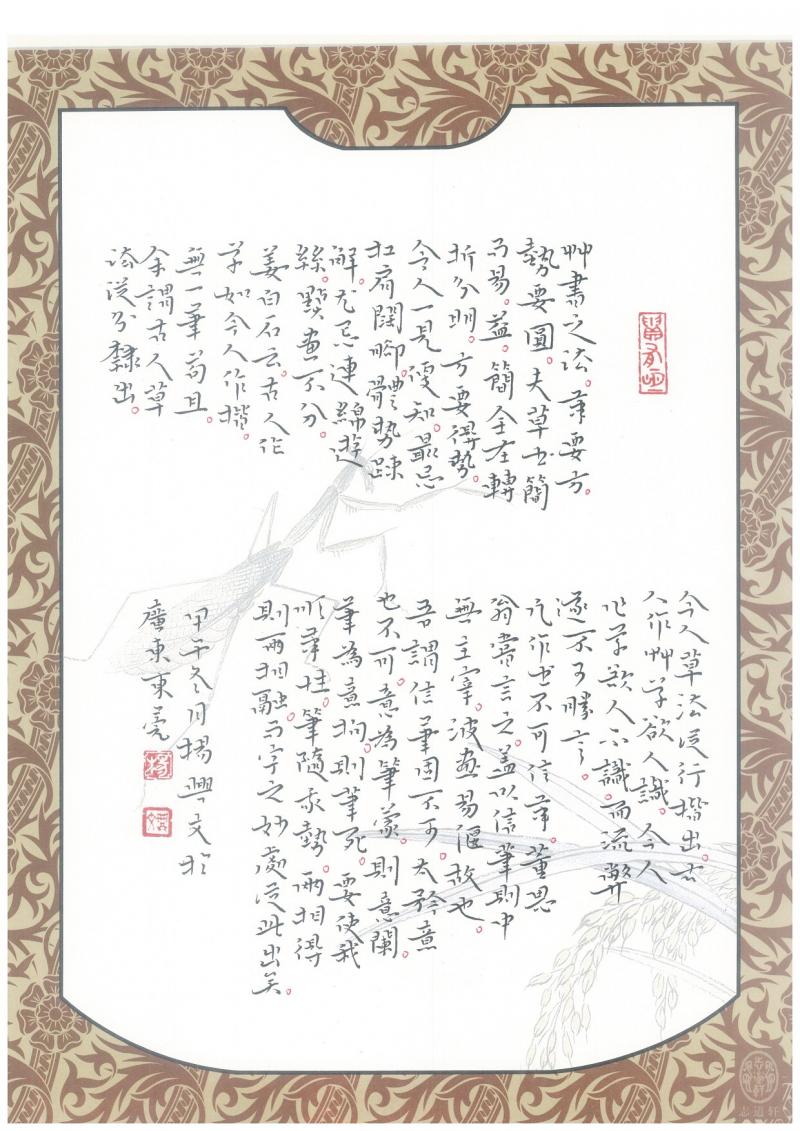 艸書之法。筆要方。
勢要圓。夫草書簡
而易。益簡全在轉
折分明。方要得勢。
令人一見便知。最忌
扛肩闊腳。體勢踈
解。尤忌連綿遊
絲。點畫不分。
姜白石云。古人作
草如今人作揩。
無一筆苟且。
余謂古人草
法從分隸出。
今人草法從行揩出。古
人作艸字欲人識。今人
作草欲人不識。而流弊
遂不可勝言。
凡作書不可信筆。董思
翁嘗言之。蓋以信筆則中
無主宰。波畫易偃故也。
吾謂信筆固不可。太矜意
也不可。意為筆蒙。則意闌。
筆為意拘。則筆死。要使我
順筆性。筆隨我勢。兩相得
則兩相融。而字之妙處從此出矣。
甲午冬月楊興文於
廣東東莞
楊
志道軒